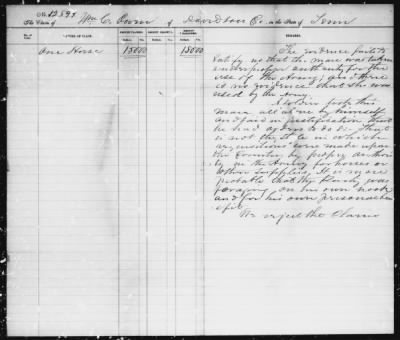 No. 12595
The Claim of Wm C. Owen of Davidson Co. in the State of Tenn
NATURE OF CLAIM. AMOUNT CLAIMED. AMOUNT ALLOWED. AMOUNT DISALLOWED. REMARKS.
Dollars. Cts. Dollars. Cts. Dollars. Cts.
One Horse 150 00 150 00
The evidence fails to
satisfy us that the mare was taken
under proper authority for the
use of the Army; and there
is no evidence that she was
used by the Army.
A soldier took this
mare all alone by himself
and said in justification that
he had orders to do so. That
is not the style in which
requisitions were made upon
the Country by proper authori
ty in the Army for horses or
other supplies. It is more
probable that the
foraging on his own hook
and for his own personal ben
efit.
We reject the Claim